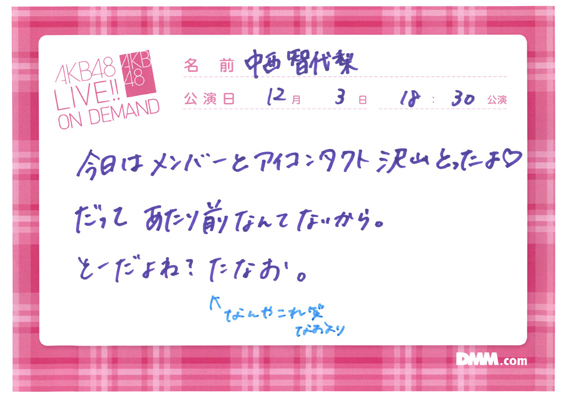 AKB48
LIVE!!
ON DEMAND
AKB
48
名 前 中西智代梨
公演日 12月 3日 18:30公演
今日はメンバーとアイコンタクト沢山とったよ♡
だって あたり前なんてないから。
そーだよね?たなお。
↑なんやこれ笑
なおより
DMM.com